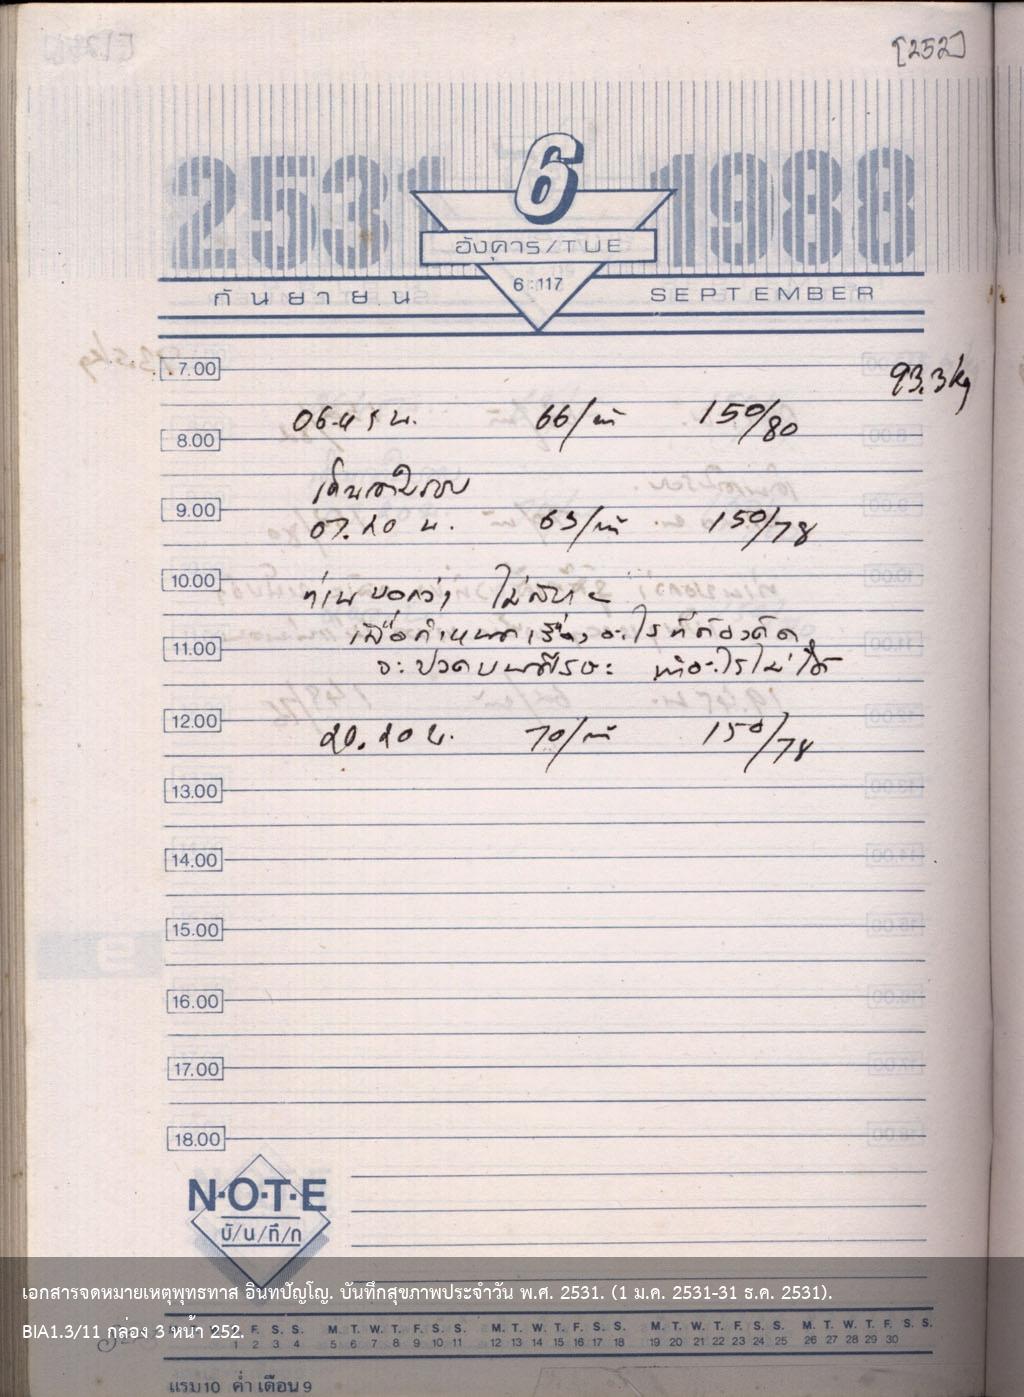 [252]
2531
6
1988
อังคาร/TUE
6:117
กันยายน
SEPTEMBER
93.3 kg
7.00
06.45 น. 66/นาที 150/80
8.00
9.00
07.20 น. 63/นาที 150/78
10.00
ท่านบอกว่า ไม่สบาย
11.00
จะปวดบนศีรษะ ทำอะไรไม่ได้
12.00
20.20 น. 70/นาที 150/78
13.00
14.00
15.00
16.00
17.00
18.00
N·O·T·E
บั/น/ทึ/ก
เอกสารจดหมายเหตุพุทธทาส อินทปัญโญ. บันทึกสุขภาพประจำวัน พ.ศ. 2531. (1 ม.ค. 2531-31 ธ.ค. 2531).
BIA1.3/11 กล่อง 3 หน้า 252.
F. S. S. M. T. W. T. F. S. S. M. T. W. T. F. S. S. M. T. W. T. F. S. S. M. T. W. T. F. S. S.
1 2 3 4 5 6 7 8 9 10 11 12 13 14 15 16 17 18 19 20 21 22 23 24 25 26 27 28 29 30
แรม 10 ค่ำ เดือน 9